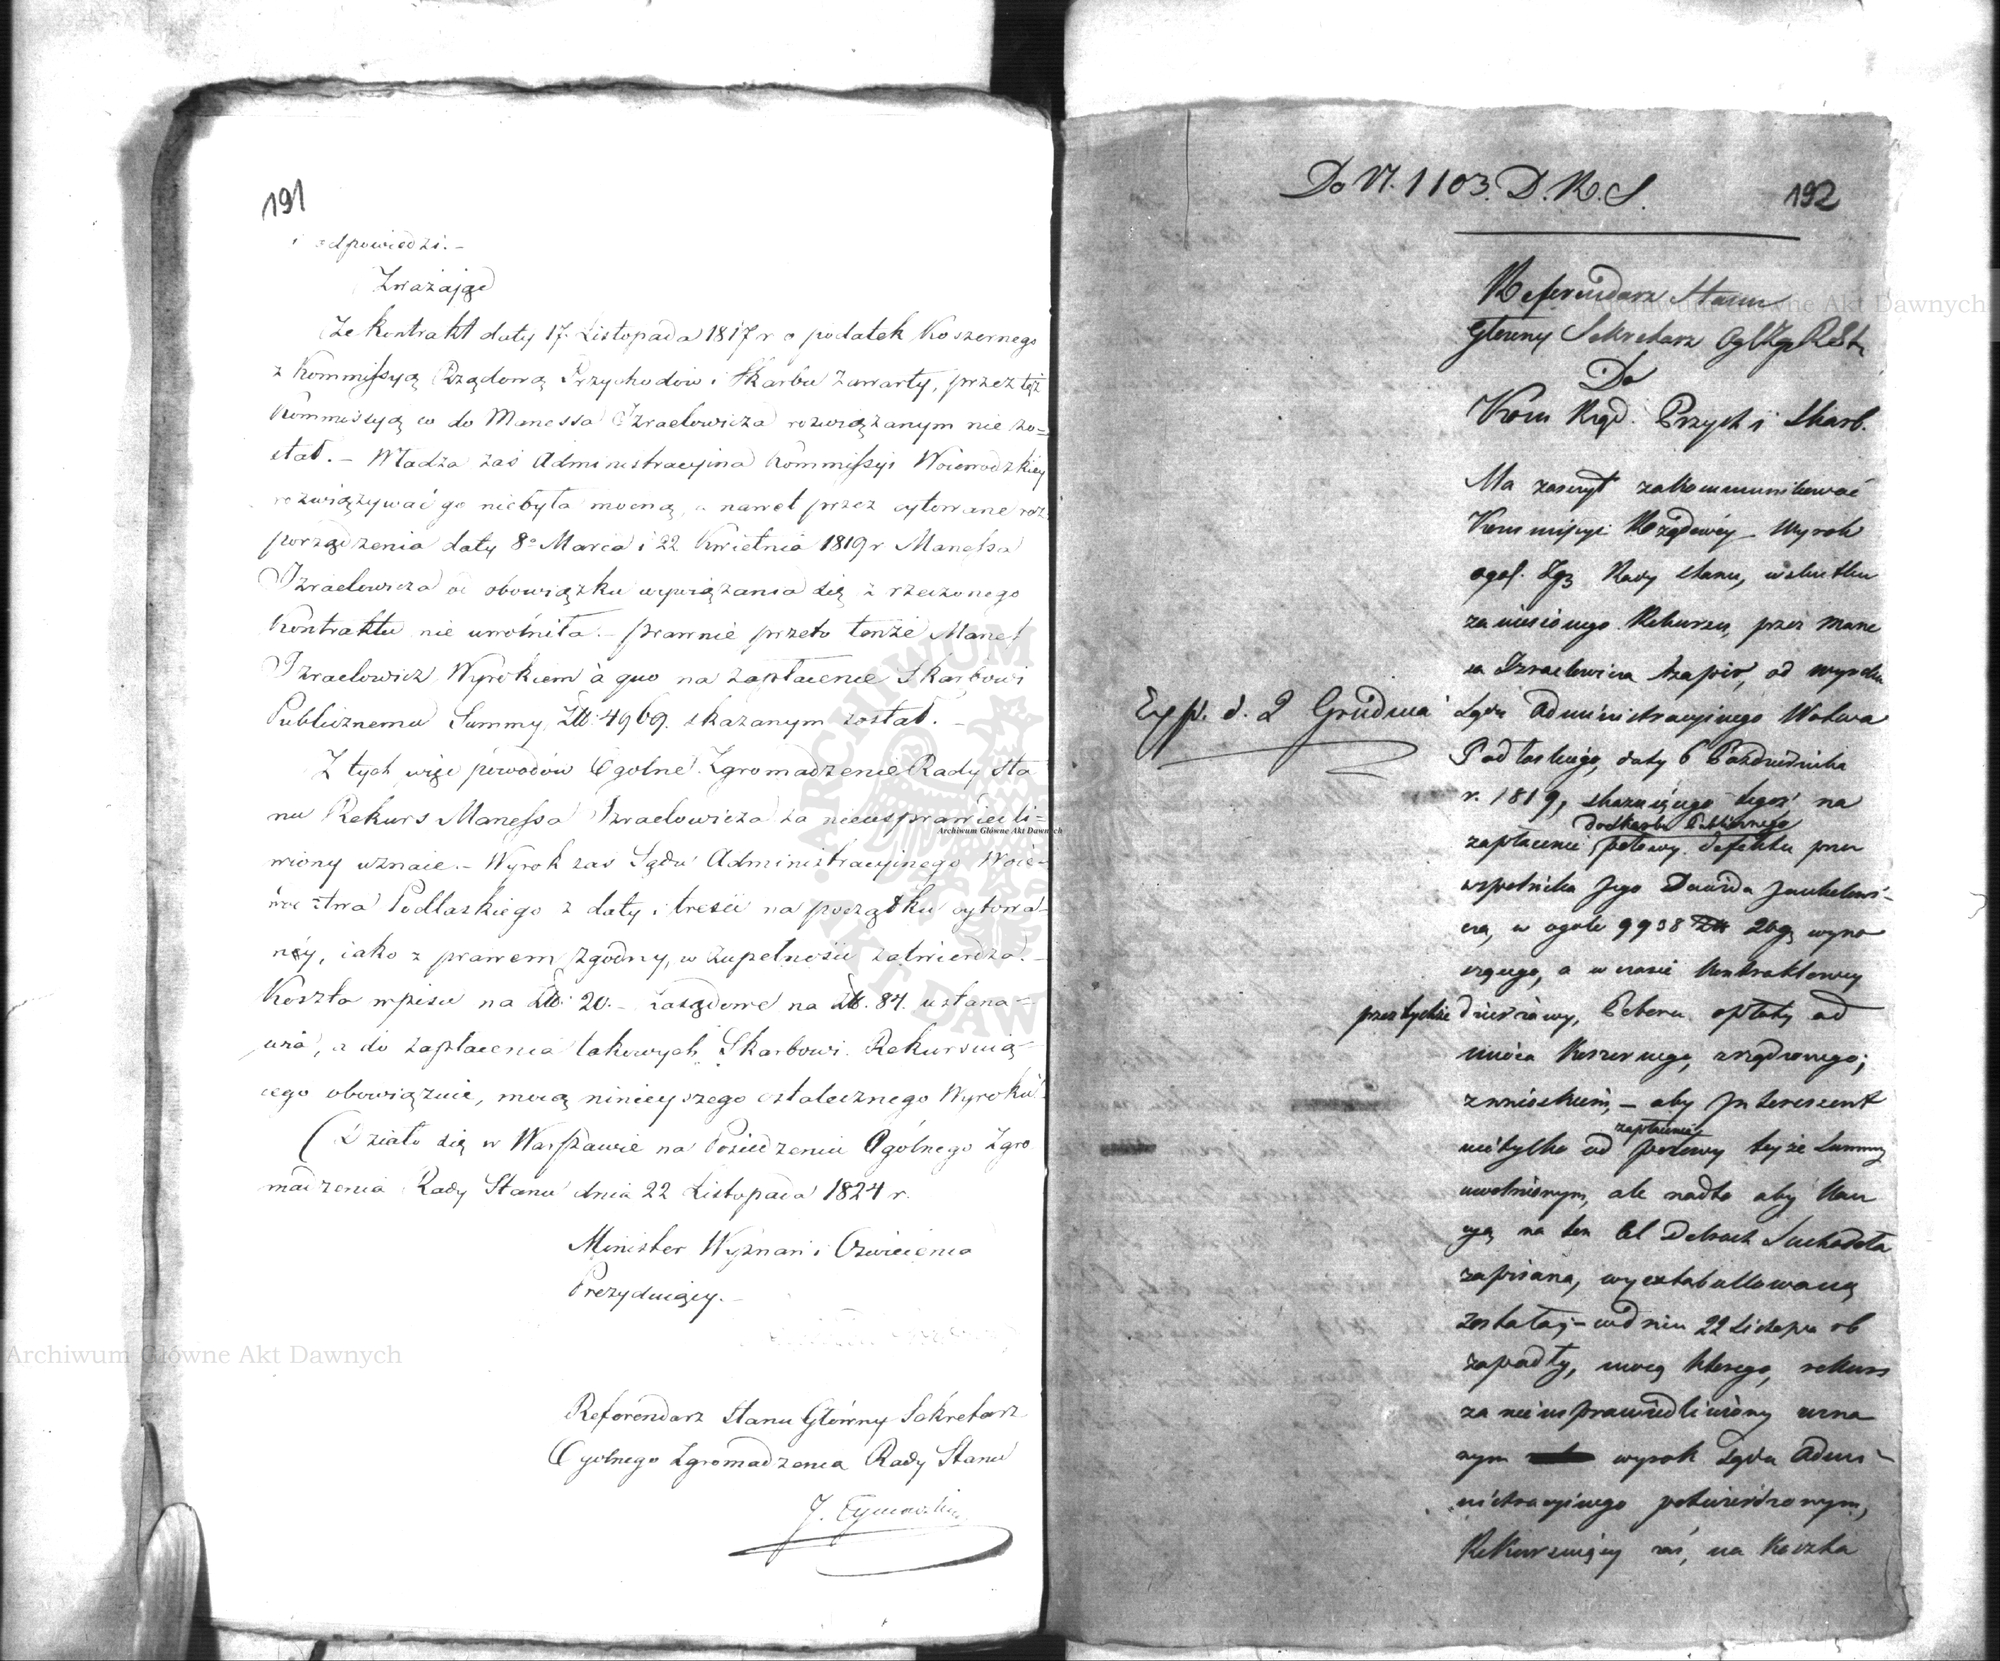 191
i odpowiedzi. –
Zważając
Że kontrakt daty 17. Listopada 1817 r o podatek Koszernego
z Kommissyą Rządową Przychodów i Skarbu zawarty, przez też
Kommissyą co do Manessa Izraelowicza rozwiązanym nie zo=
stał. – Władza zaś Administracyjna Kommissyi Woiewodzkiey
rozwiązywać go niebyła mocną, a nawet przez cytowane roz
porządzenia daty 8º Marca i 22 Kwietnia 1819 r Manessa
Izraelowicza od obowiązku wywiązania się z rzeczonego
Kontraktu nie uwolniła. – prawnie przeto tenże Manes
Izraelowicz Wyrokiem à quo na zapłacenie Skarbowi
Publicznemu Summy Złł: 4969. skazanym został. –
Z tych więc powodów Ogolne Zgromadzenie Rady Sta
nu Rekurs Manessa Izraelowicza za nieusprawiedli=
wiony uznaie. – Wyrok zaś Sądu Administracyjnego Woie=
wództwa Podlaskiego z daty i treści na początku cytowa=
néy, iako z prawem zgodny, w zupełności zatwierdza. –
Koszta wpisu na Złł: 20. – zasądowe na Złł. 84. ustana=
wia, a do zapłacenia takowych Skarbowi Rekursuią=
cego obowiązuie, mocą ninieyszego ostatecznego Wyroku.
Działo się w Warszawie na Posiedzeniu Ogólnego Zgro
madzenia Rady Stanu dnia 22 Listopada 1824 r.
Minister Wyznań i Oświecenia
Prezyduiący. –
Referendarz Stanu Główny Sekretarz
Ogolnego Zgromadzenia Rady Stanu
J. Tymowski
Do N. 1103. D. R. S.
192
Referendarz Stanu
Główny Sekretarz Og Zg R St
Do
Kom Rząd. Przych i Skarb.
Ma zaszczyt zakommunikować
Kommissyi Rządowéy Wyrok
ogól. Zgz Rady Stanu, wskutku
zaniesionego Rekursu, przez Mane
sa Izraelowicza Szapir, od wyroku
Exp. d. 2 Grudnia
Sądu Administracyjnego Wotwa
Podlaskiego, daty 6 Października
r. 1819, skazuiącego tegoż na
do Skarbu Publicznego
zapłacenie połowy defektu przez
wspolnika Jego Dawida Jankelowi=
cza, w ogóle 9938 Złł 26 g wyno
szącego, a w czasie kontraktowey
przez tychże dzierżawy, Poboru opłaty od
mięsa Koszernego, zrządzonego;
z wnioskiem, – aby Interessent
zapłacenia
nietylko od połowy teyże Summy
uwolnionym, ale nadto aby Kau
cya na ten Cel Dobrach Suchodoła
zapisana, wyextabullowaną
została; – w dniu 22 Listopa rb
zapadły, mocą którego, rekurs
za nieusprawiedliwiony uzna
nym wyrok Sądu Admi=
nistracyjnego potwierdzonym,
Rekursuiący zaś, na Koszta
Archiwum Główne Akt Dawnych
Archiwum Główne Akt Dawnych
Archiwum Główne Akt Dawnych
ARCHIWUM
AKT DAW